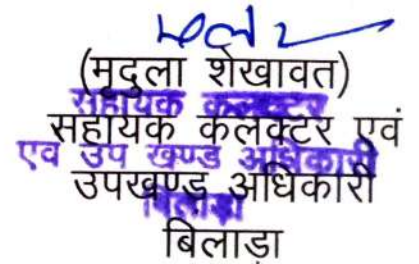 (मृदुला शेखावत)
सहायक कलक्टर
सहायक कलेक्टर एवं
एव उप खण्ड अधिकारी
उपखण्ड अधिकारी
बिलाड़ा
बिलाड़ा